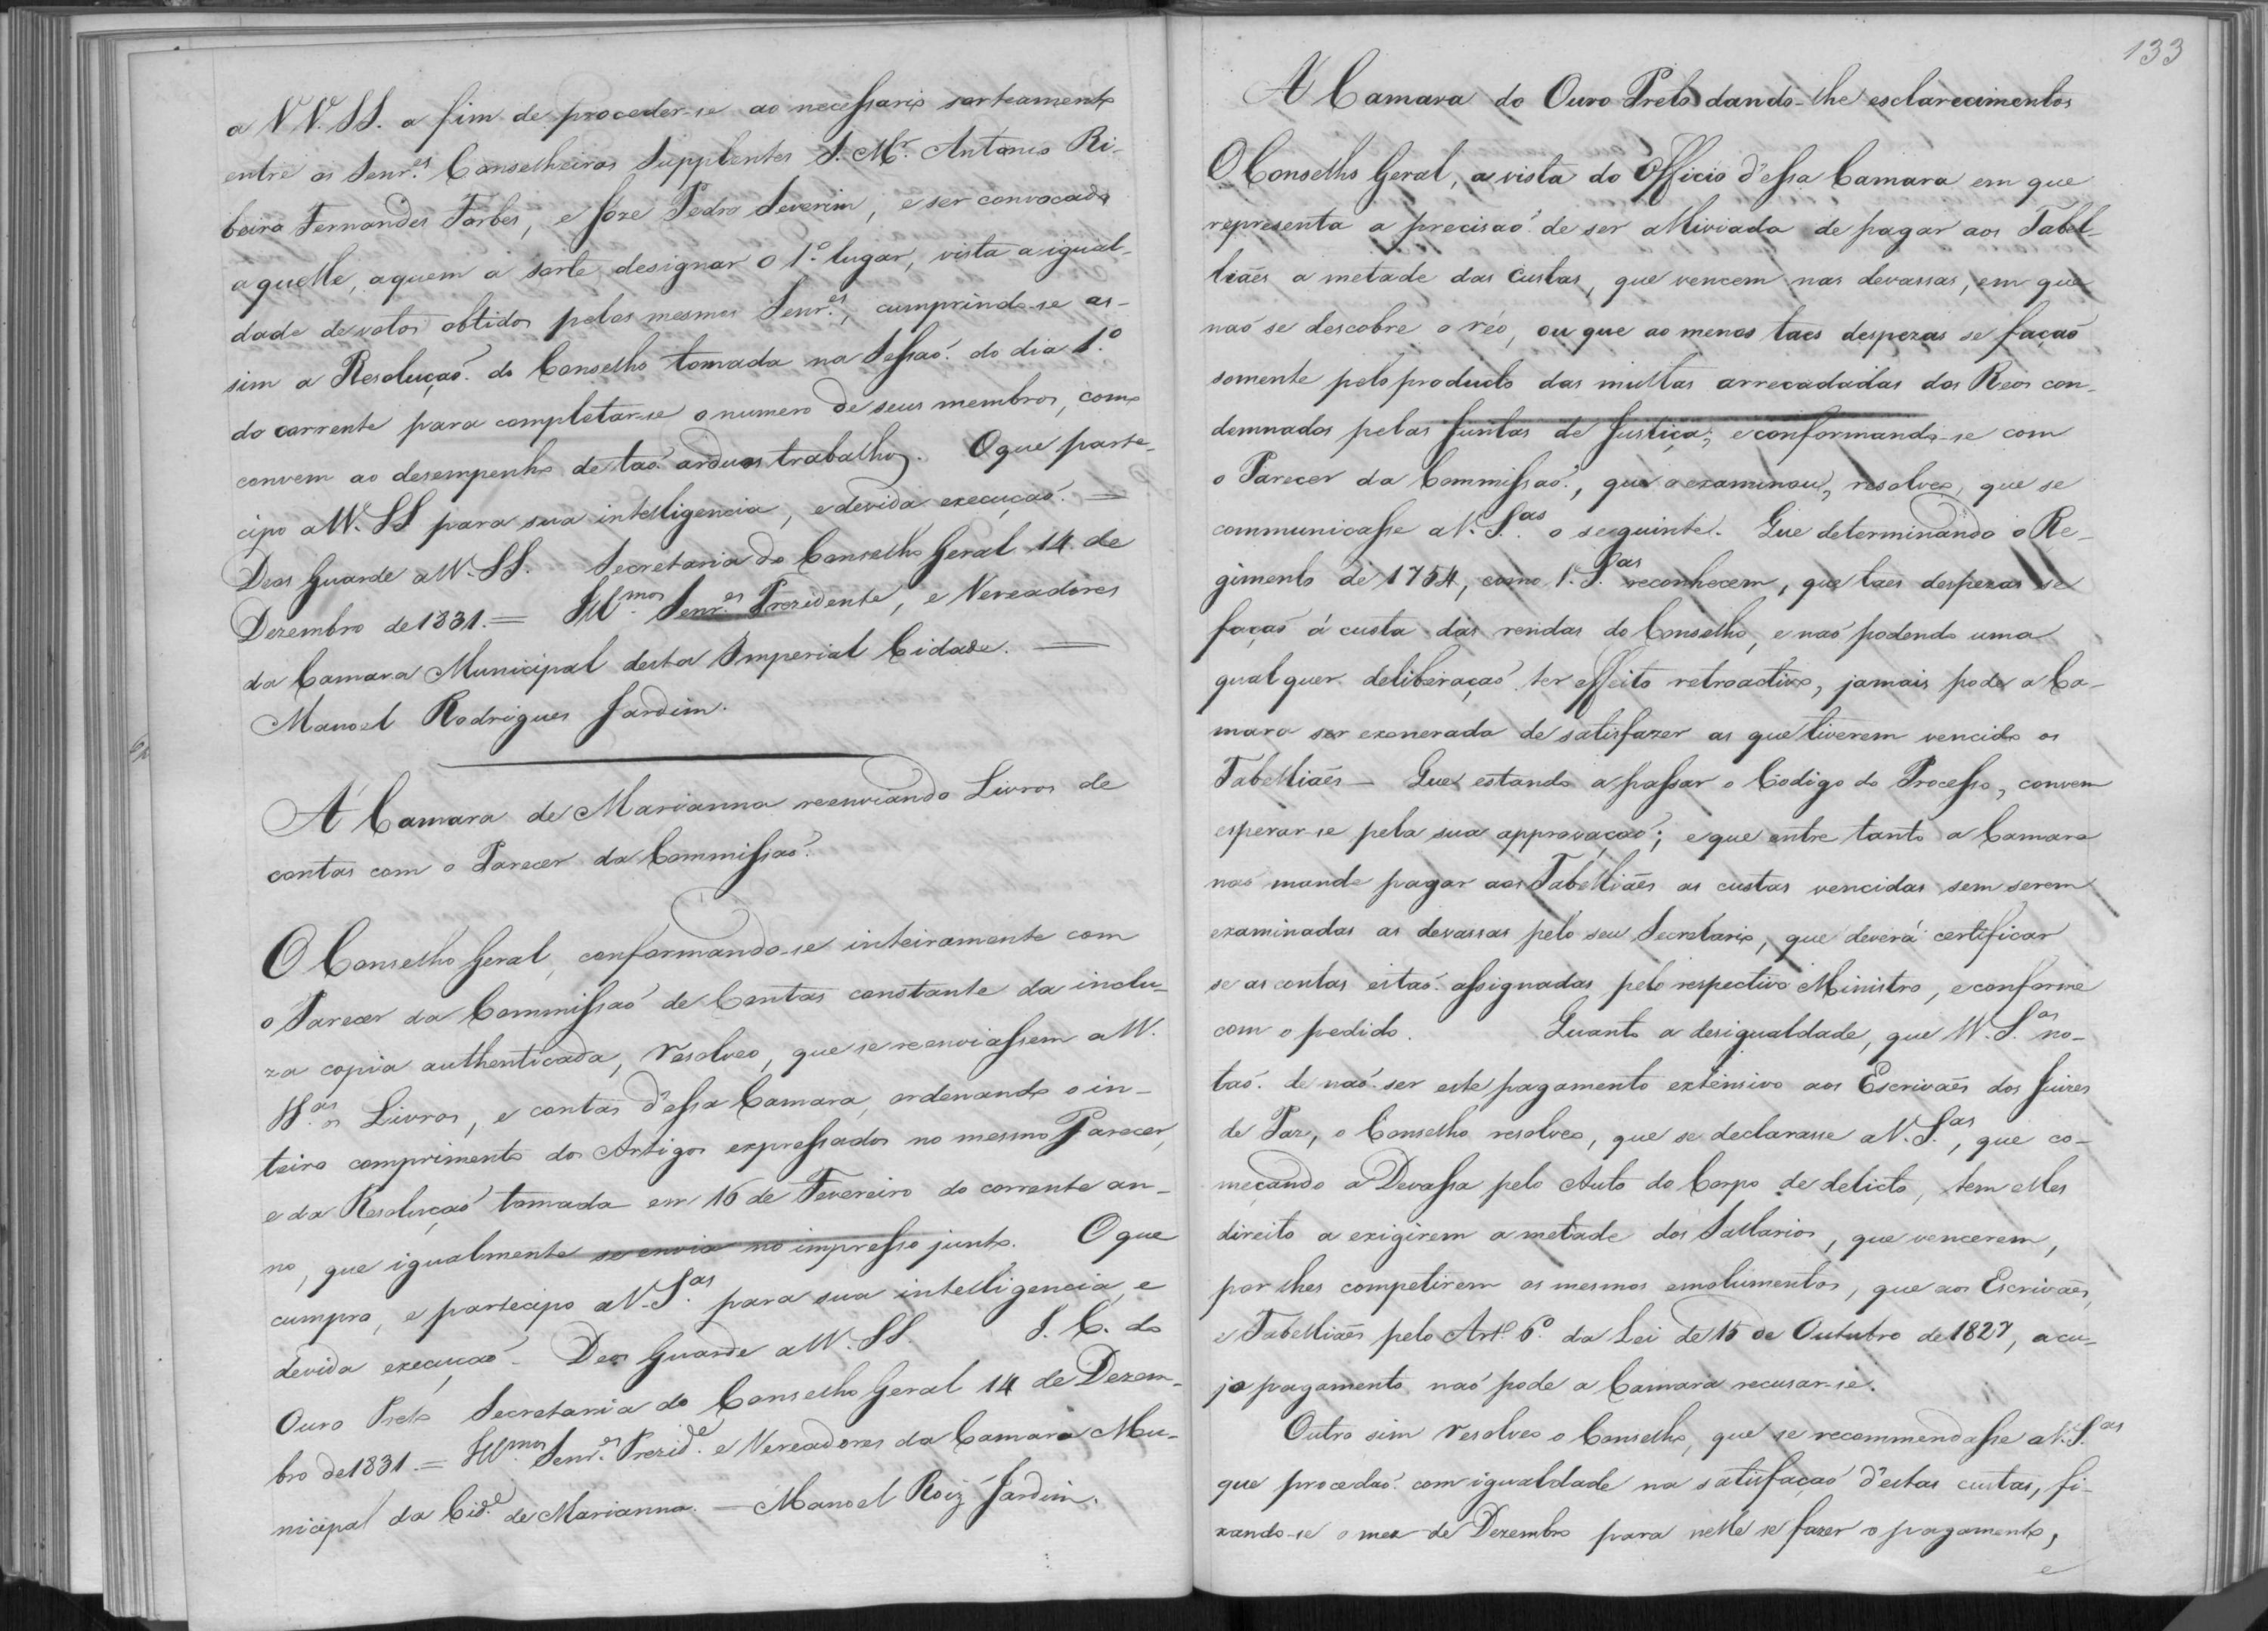 a VV. SS. a fim de proceder-se ao necessario sorteamento
entre os Senr.es Conselheiros Supplentes S. M.r Antonio Ri-
beiro Fernandes Forbes, e Joze Pedro Severim, e ser convocado
aquelle, aquem a sorte designar o 1.º lugar, vista a igual-
dade de votos obtidos pelos mesmos Senr.es, cumprindo-se as-
sim a Resoluçaõ do Conselho tomada na Sessaõ do dia 1.º
do corrente para completar-se o numero de seus membros, como
convem ao desempenho de taõ arduos trabalhos. O que parte-
cipo a VV. SS para sua intelligencia, e devida execuçaõ. =
Deos Guarde a VV. SS. Secretaria do Conselho Geral 14 de
Dezembro de 1831. = Ill.mos Senr.es Prezidente, e Vereadores
da Camara Municipal desta Imperial Cidade. =
Manoel Rodrigues Jardim.
Á Camara de Marianna reenviando Livros de
contas com o Parecer da Commissaõ.
O Conselho Geral, conformando-se inteiramente com
o Parecer da Commissaõ de Contas constante da inclu-
za copia authenticada, resolveo, que se reenviassem a VV.
SS.as os Livros, e contas d'essa Camara, ordenando o in-
teiro comprimento dos Artigos expressados no mesmo Parecer,
e da Resoluçaõ tomada em 16 de Fevereiro do corrente an-
no, que igualmente se envia no impresso junto. O que
cumpro, e partecipo a V. S.as para sua intelligencia, e
devida execuçaõ. Deos Guarde a VV. SS. I. C. do
Ouro Preto Secretaria do Conselho Geral 14 de Dezem-
bro de 1831. = Ill.mos Senr.es Prezid.e e Vereadores da Camara Mu-
nicipal da Cid.e de Marianna. — Manoel Roiz Jardim.
133
Á Camara do Ouro Preto dando-lhe esclarecimentos
O Conselho Geral, a vista do Officio d'essa Camara em que
representa a precisaõ de ser alliviada de pagar aos Tabel-
liaẽs a metade das custas, que vencem nas devassas, em que
naõ se descobre o réo, ou que ao menos taes despezas se façaõ
somente pelo producto das multas arrecadadas dos Reos con-
demnados pelas Juntas de Justiça; e conformando-se com
o Parecer da Commissaõ, que a examinou, resolveo, que se
communicasse a V. S.as o seguinte. Que determinando o Re-
gimento de 1754, como V. S.as reconhecem, que taes despezas se
façaõ á custa das rendas do Conselho, e naõ podendo uma
qualquer deliberaçaõ ter effeito retroactivo, jamais pode a Ca-
mara ser exonerada de satisfazer as que tiverem vencido os
Tabelliaẽs — Que estando a passar o Codigo do Processo, convem
esperar-se pela sua approvaçaõ; e que entre tanto a Camara
naõ mande pagar aos Tabelliaẽs as custas vencidas sem serem
examinadas as devassas pelo seu Secretario, que deverá certificar
se as contas estaõ assignadas pelo respectivo Ministro, e conforme
com o pedido. Quanto a desigualdade, que VV. S.as no-
taõ de naõ ser este pagamento extensivo aos Escrivaẽs dos Juizes
de Paz, o Conselho resolveo, que se declarasse a V. S.as, que co-
meçando a Devassa pelo Auto do Corpo de delicto, tem elles
direito a exigirem a metade dos Sallarios, que vencerem,
por lhes competirem os mesmos emolumentos, que aos Escrivaẽs,
e Tabelliaẽs pelo Art.º 6.º da Lei de 15 de Outubro de 1827, a cu-
jo pagamento naõ pode a Camara recusar-se.
Outro sim resolveo o Conselho, que se recommendasse a V. S.as
que procedaõ com igualdade na satisfaçaõ d'estas custas, fi-
xando-se o mez de Dezembro para nelle se fazer o pagamento,
e